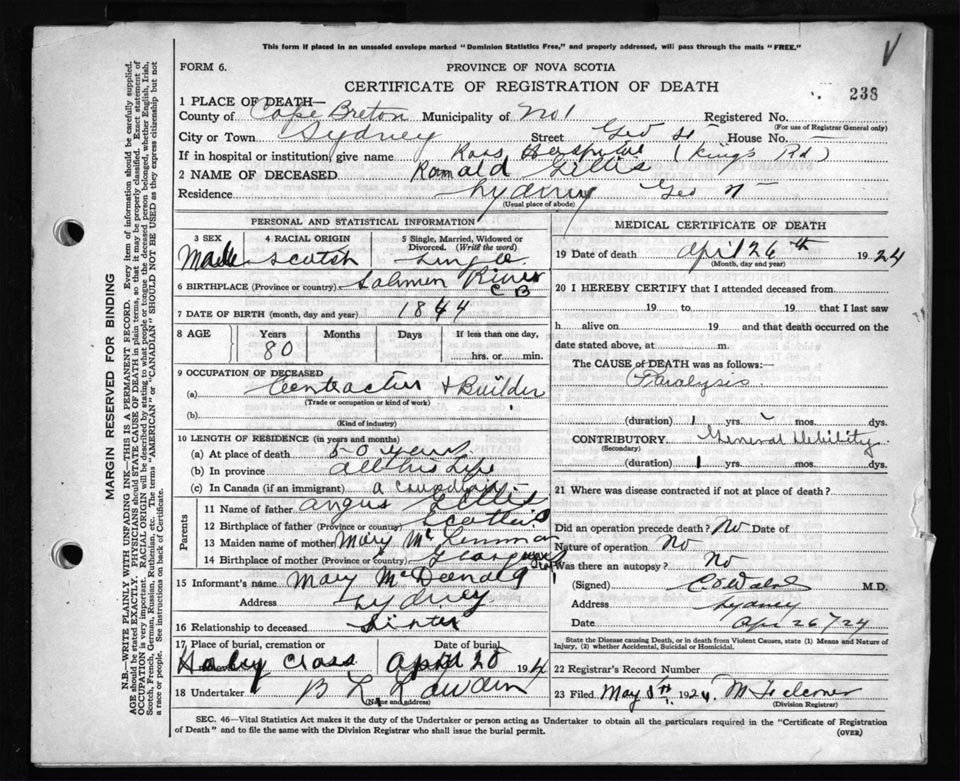 This form if placed in an unsealed envelope marked "Dominion Statistics Free," and properly addressed, will pass through the mails "FREE."
V
FORM 6.
PROVINCE OF NOVA SCOTIA
CERTIFICATE OF REGISTRATION OF DEATH
238
1 PLACE OF DEATH—
County of Cape Breton Municipality of No 1 Registered No.
(For use of Registrar General only)
City or Town Sydney Street Geo St House No. —
If in hospital or institution, give name Ross Hospital (Kings Rd)
2 NAME OF DECEASED Ronald Gillis
Residence Sydney Geo St
(Usual place of abode)
PERSONAL AND STATISTICAL INFORMATION
3 SEX Male
4 RACIAL ORIGIN Scotsh
5 Single, Married, Widowed or Divorced. (Write the word) Single
6 BIRTHPLACE (Province or country) Salmon River C B
7 DATE OF BIRTH (month, day and year) 1844
8 AGE Years Months Days If less than one day,
80 hrs. or min.
9 OCCUPATION OF DECEASED
(a) Contractor & Builder
(Trade or occupation or kind of work)
(b)
(Kind of industry)
10 LENGTH OF RESIDENCE (in years and months)
(a) At place of death 50 years
(b) In province all his life
(c) In Canada (if an immigrant) a Canadian
Parents
11 Name of father Angus Gillis
12 Birthplace of father (Province or country)
13 Maiden name of mother Mary
14 Birthplace of mother (Province or country)
15 Informant's name Mary McDonald
Address Sydney
16 Relationship to deceased Sister
17 Place of burial, cremation or Date of burial
Holy Cross April 28 192
18 Undertaker
(Name and address)
MEDICAL CERTIFICATE OF DEATH
19 Date of death April 26th 1924
(Month, day and year)
20 I HEREBY CERTIFY that I attended deceased from
19 to 19 that I last saw
h alive on 19 and that death occurred on
date stated above, at m.
The CAUSE OF DEATH was as follows:
Paralysis
(duration) 1 yrs. mos. dys.
CONTRIBUTORY General Debility
(Secondary)
(duration) 1 yrs. mos. dys.
21 Where was disease contracted if not at place of death?
Did an operation precede death? No Date of
Nature of operation No
Was there an autopsy? No
(Signed) M.D.
Address Sydney
Date Apr 26/24
State the Disease causing Death, or in death from Violent Causes, state (1) Means and Nature of Injury, (2) whether Accidental, Suicidal or Homicidal.
22 Registrar's Record Number
23 Filed May 1924
(Division Registrar)
SEC. 46—Vital Statistics Act makes it the duty of the Undertaker or person acting as Undertaker to obtain all the particulars required in the "Certificate of Registration
of Death" and to file the same with the Division Registrar who shall issue the burial permit.
(OVER)
MARGIN RESERVED FOR BINDING
N.B.—WRITE PLAINLY WITH UNFADING INK—THIS IS A PERMANENT RECORD. Every item of information should be carefully supplied.
AGE should be stated EXACTLY. PHYSICIANS should STATE CAUSE OF DEATH in plain terms, so that it may be properly classified. Exact statement of
OCCUPATION is very important. RACIAL ORIGIN will be described by stating to what people or tongue the deceased person belonged, whether English, Irish,
Scotch, French, German, Russian, Ruthenian, etc. The terms "AMERICAN" or "CANADIAN" SHOULD NOT BE USED as they express citizenship but not
a race or people. See instructions on back of Certificate.